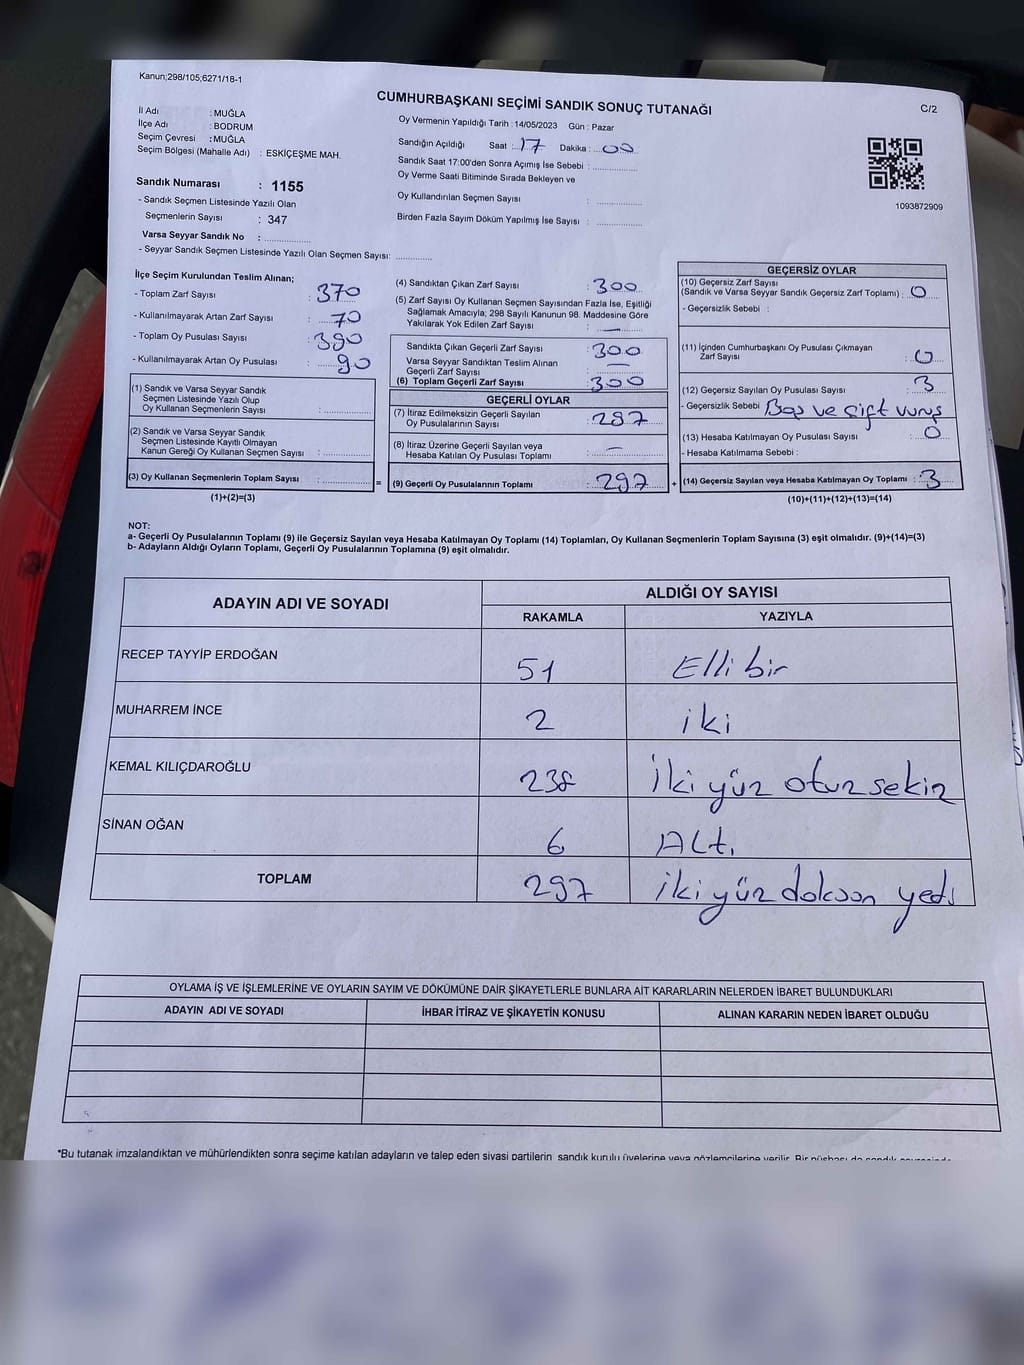 Kanun;298/105;6271/18-1
CUMHURBAŞKANI SEÇİMİ SANDIK SONUÇ TUTANAĞI
C/2
İl Adı : MUĞLA
İlçe Adı : BODRUM
Seçim Çevresi : MUĞLA
Seçim Bölgesi (Mahalle Adı) : ESKİÇEŞME MAH.
Sandık Numarası : 1155
- Sandık Seçmen Listesinde Yazılı Olan
Seçmenlerin Sayısı : 347
Varsa Seyyar Sandık No : ..............
- Seyyar Sandık Seçmen Listesinde Yazılı Olan Seçmen Sayısı: ............
Oy Vermenin Yapıldığı Tarih : 14/05/2023 Gün : Pazar
Sandığın Açıldığı Saat : 17 Dakika : 00
Sandık Saat 17:00'den Sonra Açımış İse Sebebi : ..............
Oy Verme Saati Bitiminde Sırada Bekleyen ve
Oy Kullandırılan Seçmen Sayısı : ..............
Birden Fazla Sayım Döküm Yapılmış İse Sayısı : ..............
1093872909
İlçe Seçim Kurulundan Teslim Alınan;
- Toplam Zarf Sayısı : 370
- Kullanılmayarak Artan Zarf Sayısı : 70
- Toplam Oy Pusulası Sayısı : 390
- Kullanılmayarak Artan Oy Pusulası : 90
(1) Sandık ve Varsa Seyyar Sandık
Seçmen Listesinde Yazılı Olup
Oy Kullanan Seçmenlerin Sayısı : ..............
(2) Sandık ve Varsa Seyyar Sandık
Seçmen Listesinde Kayıtlı Olmayan
Kanun Gereği Oy Kullanan Seçmen Sayısı : ..............
(3) Oy Kullanan Seçmenlerin Toplam Sayısı : .............. =
(1)+(2)=(3)
(4) Sandıktan Çıkan Zarf Sayısı : 300
(5) Zarf Sayısı Oy Kullanan Seçmen Sayısından Fazla İse, Eşitliği
Sağlamak Amacıyla; 298 Sayılı Kanunun 98. Maddesine Göre
Yakılarak Yok Edilen Zarf Sayısı : —
Sandıkta Çıkan Geçerli Zarf Sayısı : 300
Varsa Seyyar Sandıktan Teslim Alınan
Geçerli Zarf Sayısı : —
(6) Toplam Geçerli Zarf Sayısı : 300
GEÇERLİ OYLAR
(7) İtiraz Edilmeksizin Geçerli Sayılan
Oy Pusulalarının Sayısı : 297
(8) İtiraz Üzerine Geçerli Sayılan veya
Hesaba Katılan Oy Pusulası Toplamı : —
(9) Geçerli Oy Pusulalarının Toplamı : 297 +
GEÇERSİZ OYLAR
(10) Geçersiz Zarf Sayısı
(Sandık ve Varsa Seyyar Sandık Geçersiz Zarf Toplamı) : 0
- Geçersizlik Sebebi :
(11) İçinden Cumhurbaşkanı Oy Pusulası Çıkmayan
Zarf Sayısı : 0
(12) Geçersiz Sayılan Oy Pusulası Sayısı : 3
- Geçersizlik Sebebi Boş ve çift vuruş
(13) Hesaba Katılmayan Oy Pusulası Sayısı : 0
- Hesaba Katılmama Sebebi :
(14) Geçersiz Sayılan veya Hesaba Katılmayan Oy Toplamı : 3
(10)+(11)+(12)+(13)=(14)
NOT:
a- Geçerli Oy Pusulalarının Toplamı (9) ile Geçersiz Sayılan veya Hesaba Katılmayan Oy Toplamı (14) Toplamları, Oy Kullanan Seçmenlerin Toplam Sayısına (3) eşit olmalıdır. (9)+(14)=(3)
b- Adayların Aldığı Oyların Toplamı, Geçerli Oy Pusulalarının Toplamına (9) eşit olmalıdır.
ADAYIN ADI VE SOYADI
ALDIĞI OY SAYISI
RAKAMLA YAZIYLA
RECEP TAYYİP ERDOĞAN 51 Elli bir
MUHARREM İNCE 2 iki
KEMAL KILIÇDAROĞLU 238 İki yüz otuz sekiz
SİNAN OĞAN 6 Altı
TOPLAM 297 iki yüz doksan yedi
OYLAMA İŞ VE İŞLEMLERİNE VE OYLARIN SAYIM VE DÖKÜMÜNE DAİR ŞİKAYETLERLE BUNLARA AİT KARARLARIN NELERDEN İBARET BULUNDUKLARI
ADAYIN ADI VE SOYADI İHBAR İTİRAZ VE ŞİKAYETİN KONUSU ALINAN KARARIN NEDEN İBARET OLDUĞU
*Bu tutanak imzalandıktan ve mühürlendikten sonra seçime katılan adayların ve talep eden siyasi partilerin sandık kurulu üyelerine veya gözlemcilerine verilir. Bir nüshası da sandık